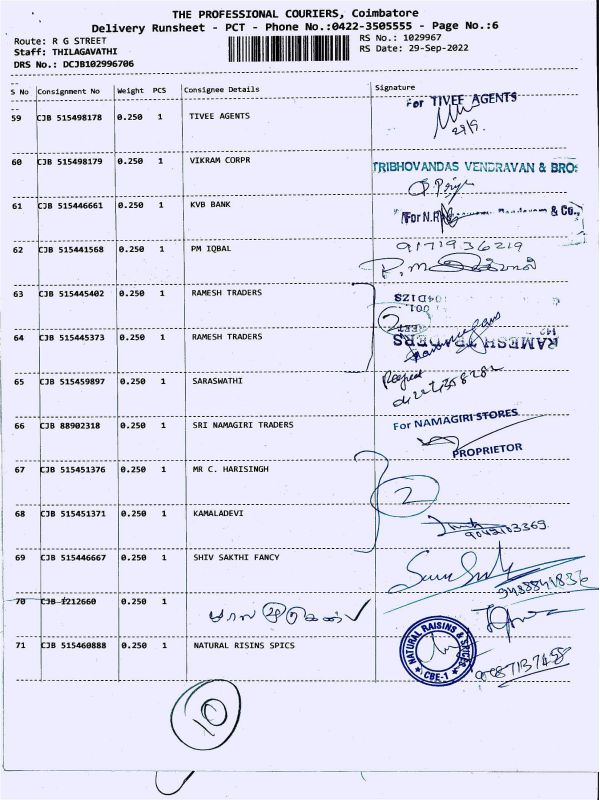 THE PROFESSIONAL COURIERS, Coimbatore
Delivery Runsheet - PCT - Phone No.:0422-3505555 - Page No.:6
Route: R G STREET
RS No.: 1029967
Staff: THILAGAVATHI
RS Date: 29-Sep-2022
DRS No.: DCJB102996706
S No Consignment No Weight PCS Consignee Details Signature
59 CJB 515498178 0.250 1 TIVEE AGENTS
For TIVEE AGENTS
29/9.
60 CJB 515498179 0.250 1 VIKRAM CORPR
TRIBHOVANDAS VENDRAVAN & BROS
61 CJB 515446661 0.250 1 KVB BANK
For N.R. & Co.,
62 CJB 515441568 0.250 1 PM IQBAL
9171936219
63 CJB 515445402 0.250 1 RAMESH TRADERS
04D1ZS
2
64 CJB 515445373 0.250 1 RAMESH TRADERS
RAMESH TRADERS
65 CJB 515459897 0.250 1 SARASWATHI
66 CJB 88902318 0.250 1 SRI NAMAGIRI TRADERS
For NAMAGIRI STORES
PROPRIETOR
67 CJB 515451376 0.250 1 MR C. HARISINGH
2
68 CJB 515451371 0.250 1 KAMALADEVI
9042103369
69 CJB 515446667 0.250 1 SHIV SAKTHI FANCY
9488841836
70 CJB 1212660 0.250 1
71 CJB 515460888 0.250 1 NATURAL RISINS SPICS
NATURAL RAISINS & SPICES
CBE-1
10